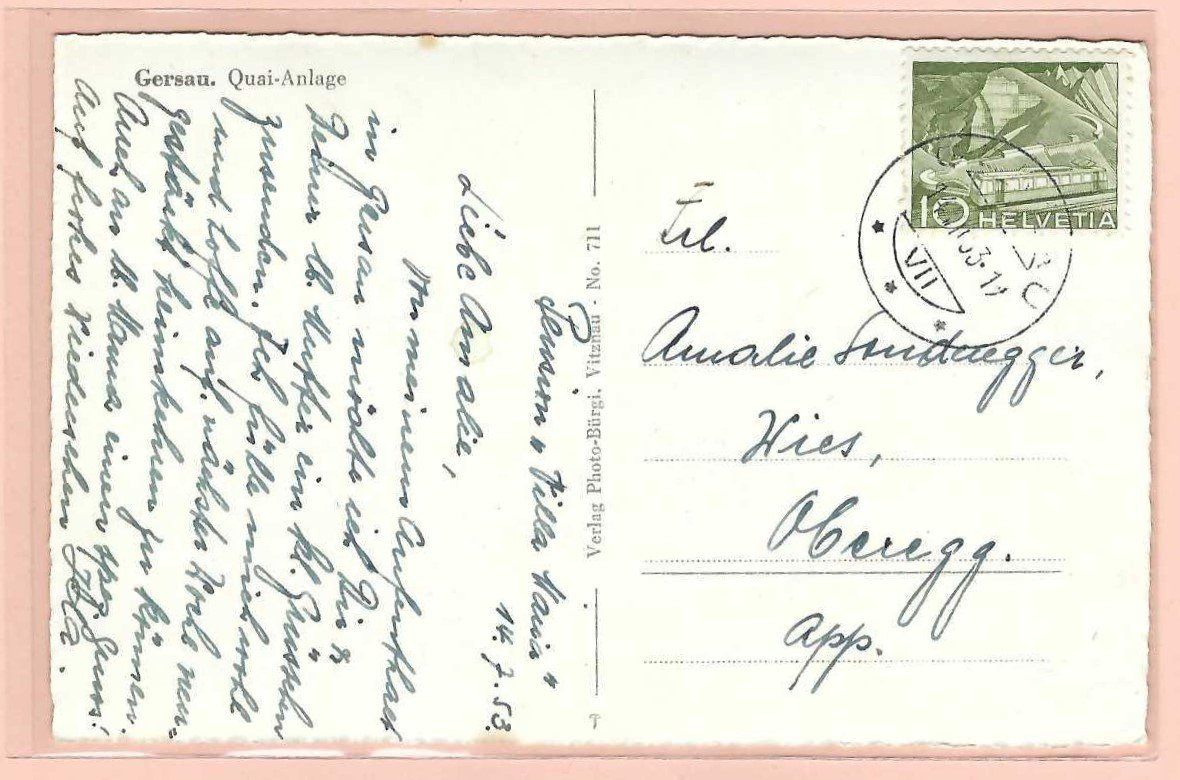 Gersau. Quai-Anlage
Pension "Villa Maria"
14.7.53.
Liebe Amalie,
Von meinem Aufenthalt
in Gersau möchte ich Dir &
Deiner lb. Mutter ein kl. Grüsschen
zusenden. Ich fühle mich wohl
und hoffe auf nächster Woche neu-
gestärkt heimkehren zu können.
Auch an lb. Mama einen spez. Gruss!
Auf frohes Wiedersehen
Verlag Photo-Bürgi, Vitznau · No. 711
Frl.
Amalie Sonderegger,
Wies,
Oberegg.
App.
10 HELVETIA
VII
53-11